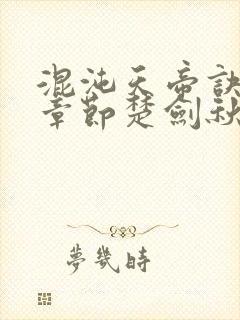 混沌天帝訣
章節楚劍秋
夢幾時